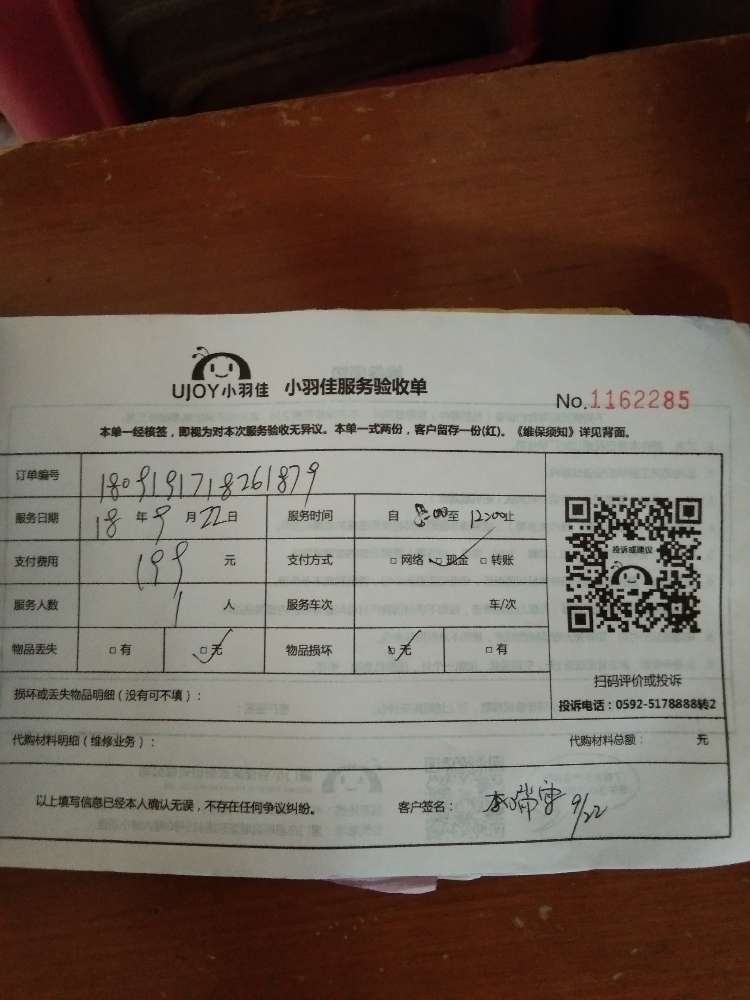 UJOY小羽佳 小羽佳服务验收单
No.1162285
本单一经核签，即视为对本次服务验收无异议。本单一式两份，客户留存一份(红)。《维保须知》详见背面。
订单编号 1809191718261879
服务日期 18年9月22日 服务时间 自 8:00至 12:00止
支付费用 199 元 支付方式 □网络 □现金 □转账
服务人数 1 人 服务车次 车/次
物品丢失 □有 □无 物品损坏 □无 □有
投诉或建议
扫码评价或投诉
投诉电话：0592-5178888转2
损坏或丢失物品明细（没有可不填）：
代购材料明细（维修业务）： 代购材料总额： 元
以上填写信息已经本人确认无误，不存在任何争议纠纷。 客户签名： 李瑞雪 9/22